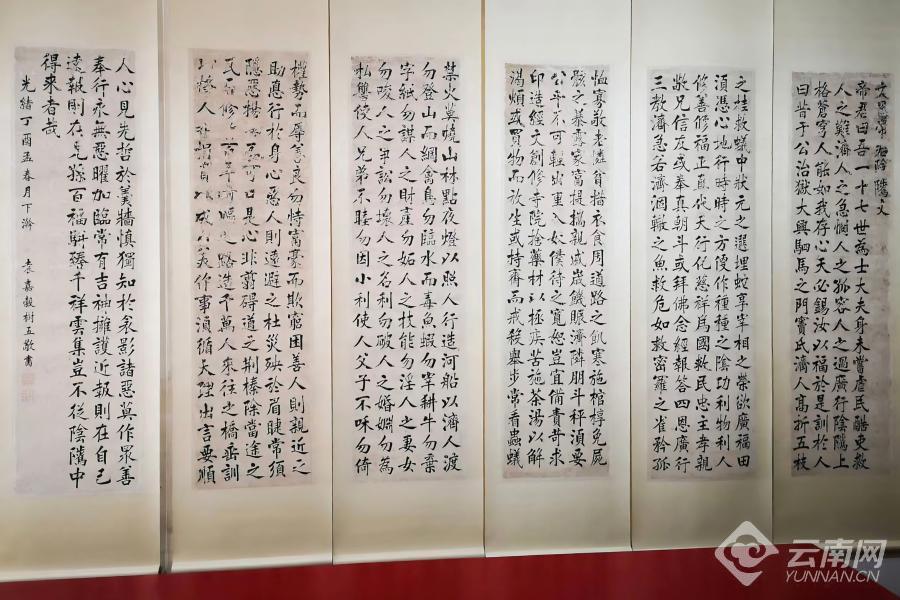 文昌帝君陰騭文
帝君曰吾一十七世為士大夫身未嘗虐民酷吏救
人之難濟人之急憫人之孤容人之過廣行陰騭上
格蒼穹人能如我存心天必錫汝以福於是訓於人
曰昔于公治獄大興駟馬之門竇氏濟人高折五枝
之桂救蟻中狀元之選埋蛇享宰相之榮欲廣福田
須憑心地行時時之方便作種種之陰功利物利人
修善修福正直代天行化慈祥為國救民忠主孝親
敬兄信友或奉真朝斗或拜佛念經報答四恩廣行
三教濟急若濟涸轍之魚救危如救密羅之雀矜孤
恤寡敬老憐貧措衣食周道路之飢寒施棺槨免屍
骸之暴露家富提攜親戚歲饑賑濟隣朋斗秤須要
公平不可輕出重入奴僕待之寬恕豈宜備責苛求
印造經文創修寺院捨藥材以拯疾苦施茶湯以解
渴煩或買物而放生或持齋而戒殺舉步常看蟲蟻
禁火莫燒山林點夜燈以照人行造河船以濟人渡
勿登山而網禽鳥勿臨水而毒魚蝦勿宰耕牛勿棄
字紙勿謀人之財產勿妬人之技能勿淫人之妻女
勿唆人之爭訟勿壞人之名利勿破人之婚姻勿為
私讐使人兄弟不睦勿因小利使人父子不和勿倚
權勢而辱善良勿恃富豪而欺窮困善人則親近之
助德行於身心惡人則遠避之杜災殃於眉睫常須
隱惡揚善不可口是心非翦礙道之荊榛除當途之
瓦石修之路造千萬人來往之橋垂訓
以格人非捐貲以成人美作事須循天理出言要順
人心見先哲於羹牆慎獨知於衾影諸惡莫作眾善
奉行永無惡曜加臨常有吉神擁護近報則在自己
遠報則在兒孫百福駢臻千祥雲集豈不從陰騭中
得來者哉
光緒丁酉孟春月下澣 袁嘉穀樹五敬書
云南网
YUNNAN.CN